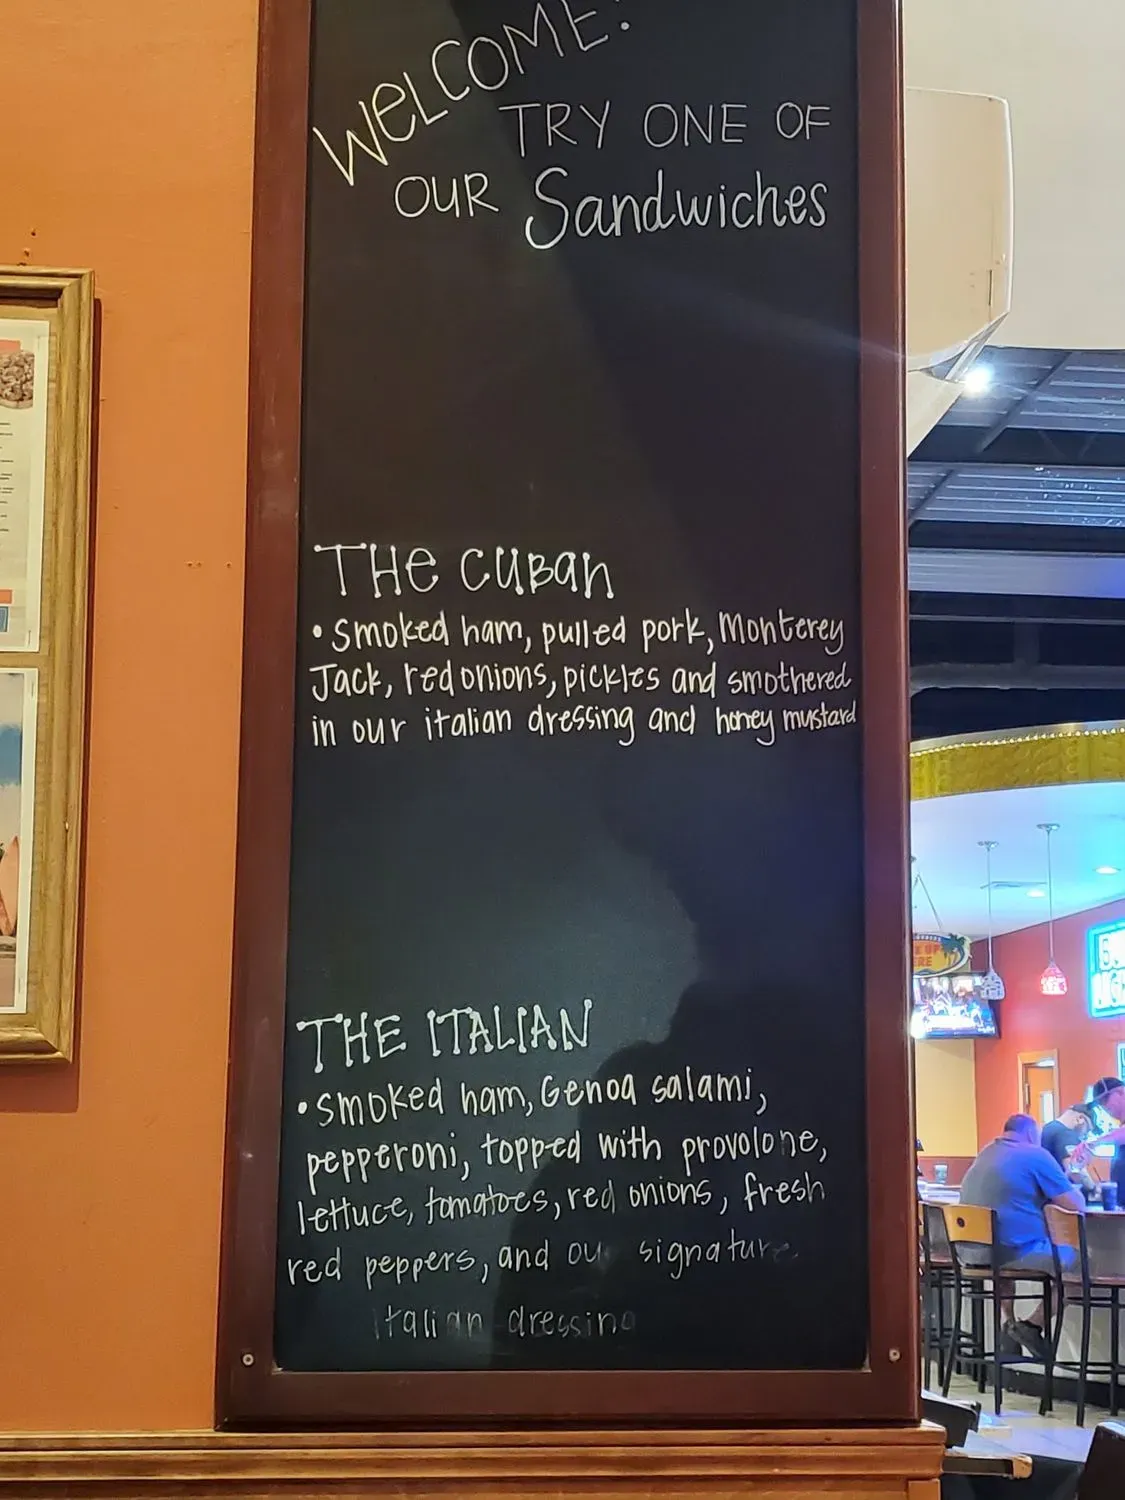 WELCOME!
TRY ONE OF
OUR Sandwiches
THE CUBAN
• Smoked ham, pulled pork, Monterey
Jack, red onions, pickles and smothered
in our italian dressing and honey mustard
THE ITALIAN
• Smoked ham, Genoa salami,
pepperoni, topped with provolone,
lettuce, tomatoes, red onions, fresh
red peppers, and our signature
italian dressing